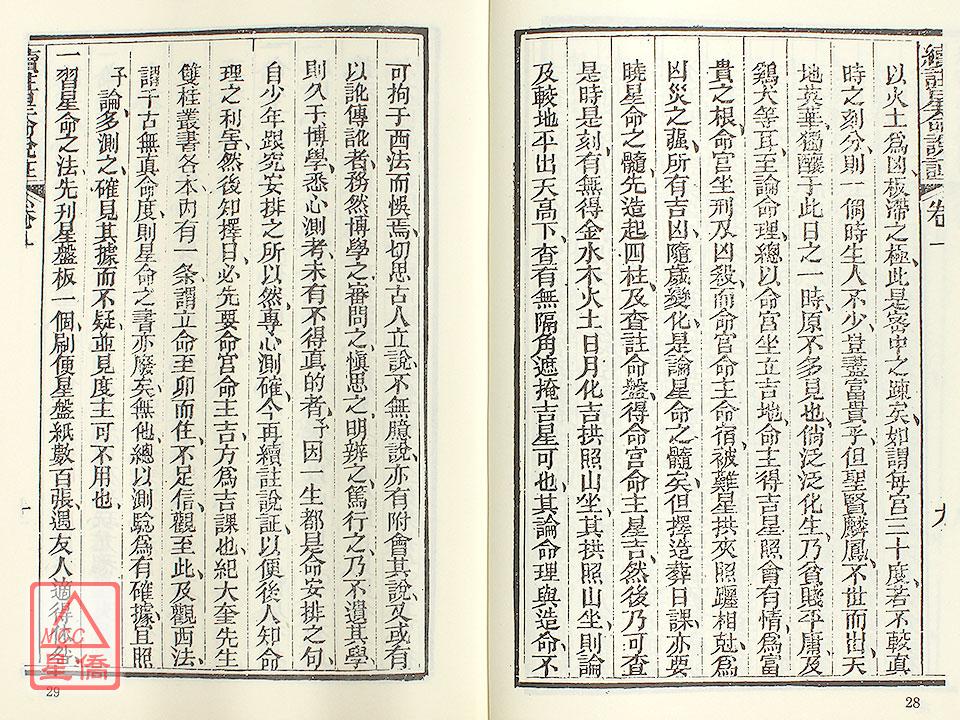 續註星命說證 卷一 九
以火土爲凶、板滯之極、此是密中之疎矣、如謂每宮三十度、若不較真
時之刻分、則一個時生人不少、豈盡富貴乎、但聖賢麟鳳、不世而出、天
地英華獨釀于此日之一時、原不多見也、倘泛泛化生、乃貧賤平庸、及
鷄犬等耳、至論命理、總以命宮坐立吉地、命主得吉星照會有情、爲富
貴之根、命宮坐刑及凶殺、而命宮命主命宿、被難星拱夾照躔相尅、爲
凶災之蘊、所有吉凶隨歲變化、是論星命之髓矣、但擇造葬日課、亦要
曉星命之髓、先造起四柱、及查註命盤、得命宮命主星吉、然後乃可查
是時是刻、有無得金水木火土日月化吉拱照山坐、其拱照山坐、則論
及較地平出天高下、查有無隔角遮掩吉星可也、其論命理與造命、不
28
可拘于西法而悞焉、切思古人立說、不無臆說、亦有附會其說、又或有
以訛傳訛者、務然博學之、審問之、愼思之、明辨之、篤行之、乃不遺其學
則久于博學、悉心測考、未有不得真的者、予因一生都是命安排之句、
自少年跟究安排之所以然、專心測確、今再續註說証、以便後人知命
理之利害、然後知擇日、必先要命宮命主吉、方爲吉課也、紀大奎先生
雙桂叢書各本內有一条、謂立命至卯而住、不足信、觀至此、及觀西法、
謂于古無真命度、則星命之書亦廢矣、無他、總以測驗爲有確據、宜照
予論、多測之、確見其據而不疑、並見度主可不用也、
一習星命之法、先刋星盤板一個、刷便星盤紙數百張、遇友人適得
29
星僑
MCC